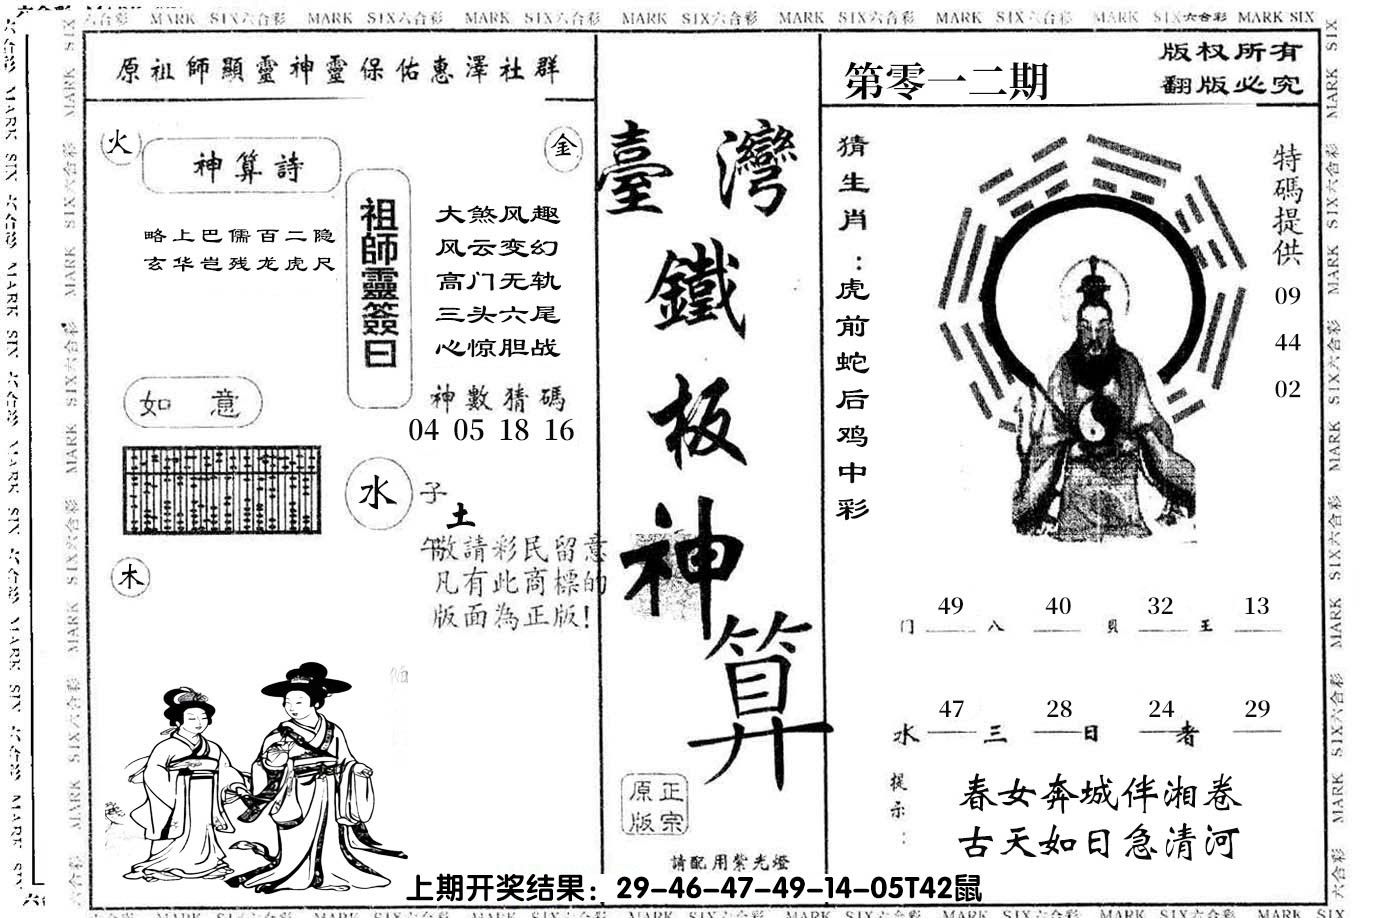 MARK SIX六合彩 MARK SIX六合彩 MARK SIX六合彩 MARK SIX六合彩 MARK SIX六合彩 MARK SIX六合彩 MARK SIX六合彩 MARK SIX
原祖師顯靈神靈保佑惠澤社群
火
金
神算詩
略上巴儒百二隐
玄华岂残龙虎尺
祖師靈簽曰
大煞风趣
风云变幻
高门无轨
三头六尾
心惊胆战
神數猜碼
04 05 18 16
如意
水
子
土
午
木
敬請彩民留意
凡有此商標的
版面為正版!
臺灣
鐵
板
神
算
正宗
原版
請配用紫光燈
第零一二期
版权所有
翻版必究
猜生肖:虎前蛇后鸡中彩
特碼提供
09
44
02
49 40 32 13
门 八 貝 王
47 28 24 29
水 三 日 者
提示:
春女奔城伴湘卷
古天如日急清河
上期开奖结果：29-46-47-49-14-05T42鼠